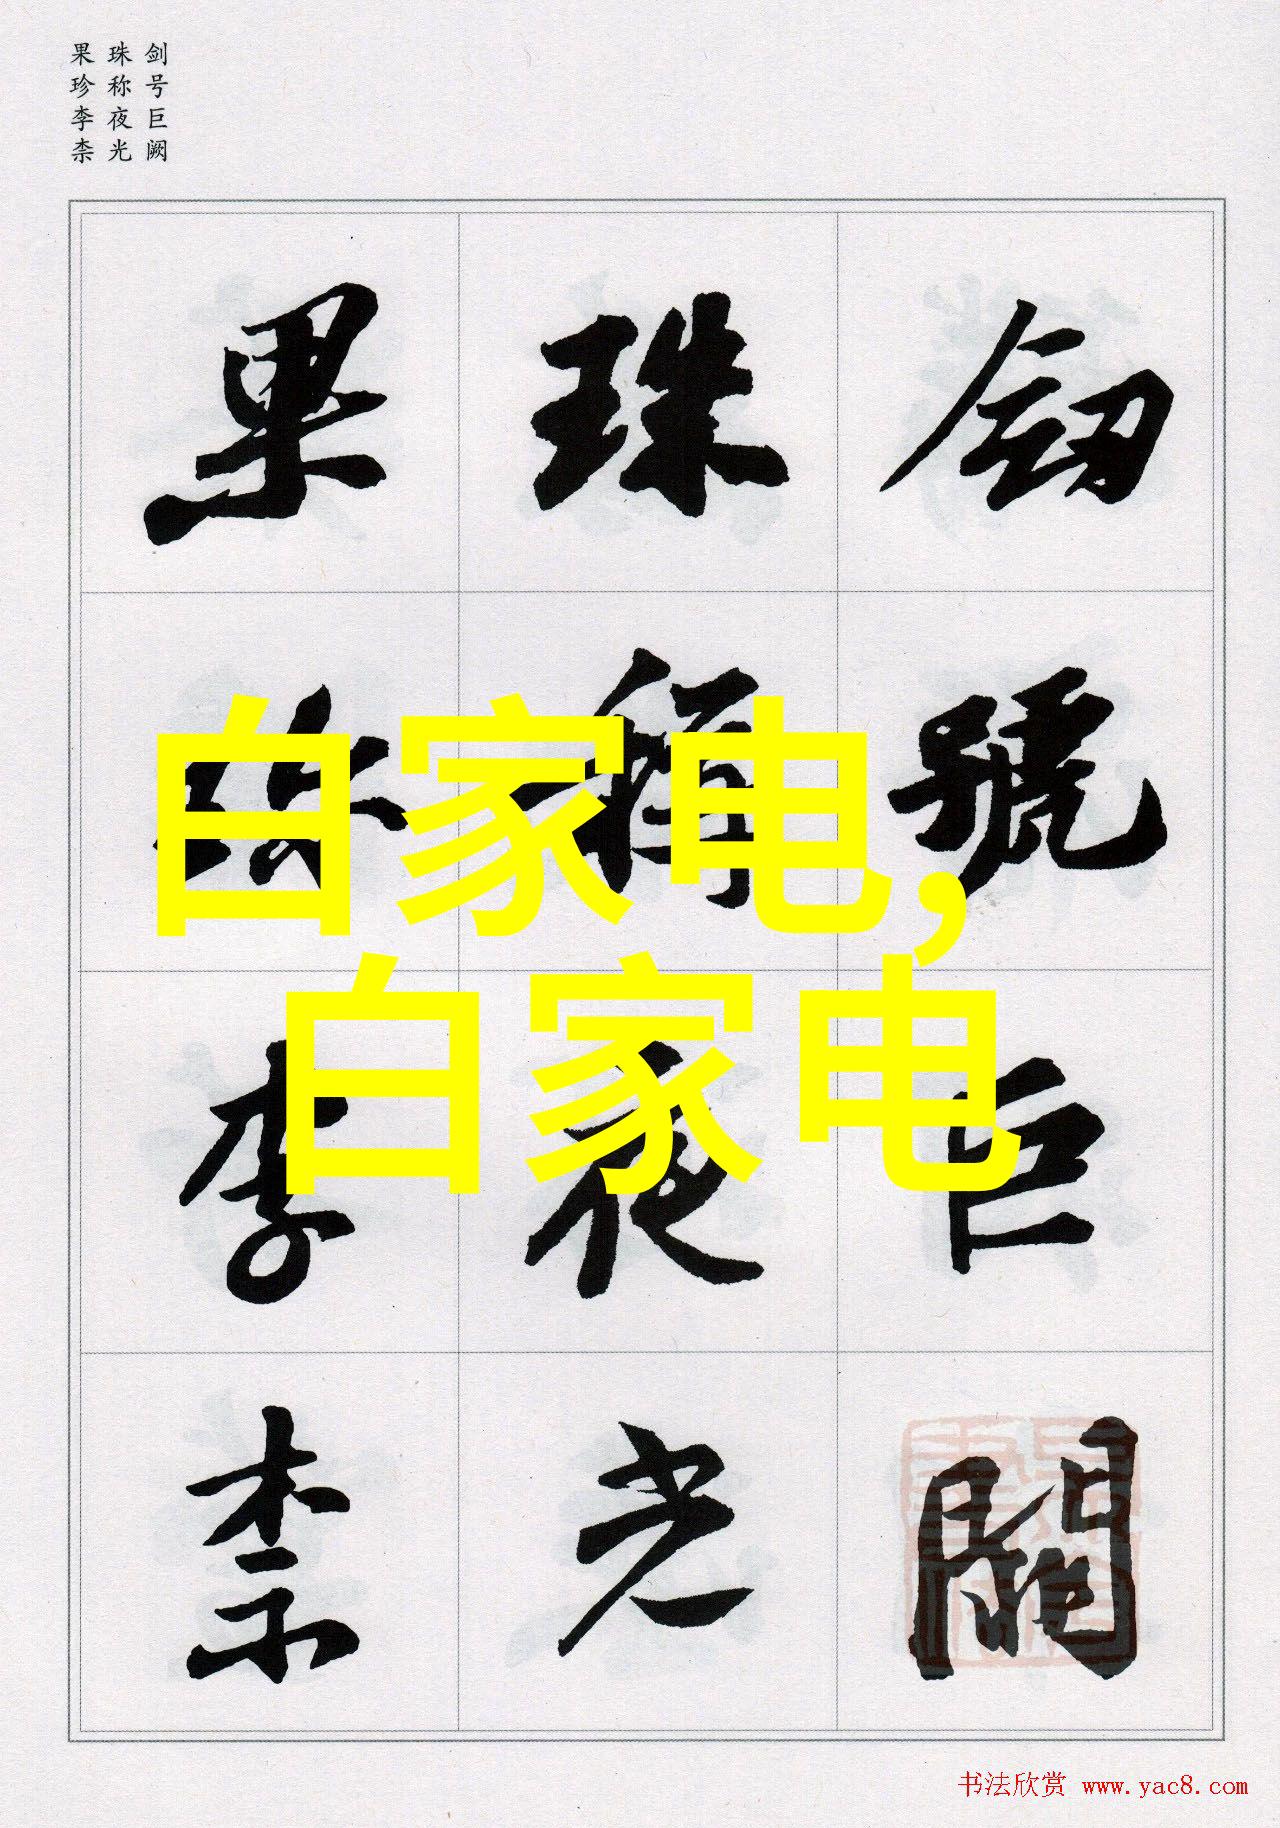 剑号巨阙
珠称夜光
果珍李柰
剑號巨闕
珠稱夜光
果珍李柰
白家电,
白家电
书法欣赏 www.yac8.com